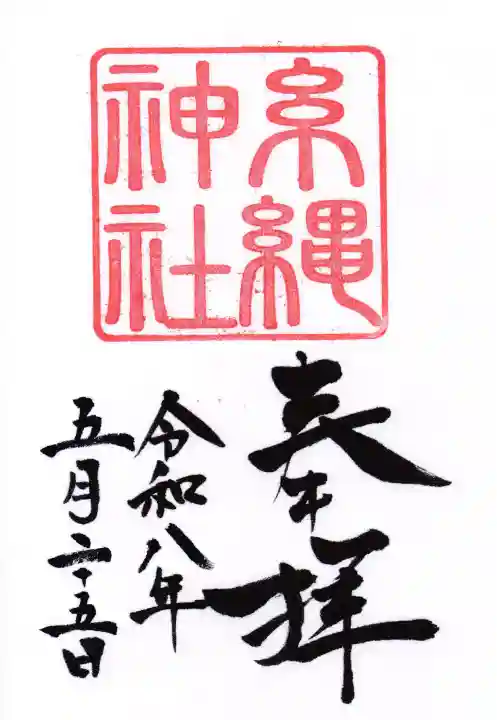 糸縄
神社
奉拝
令和八年
五月二十五日